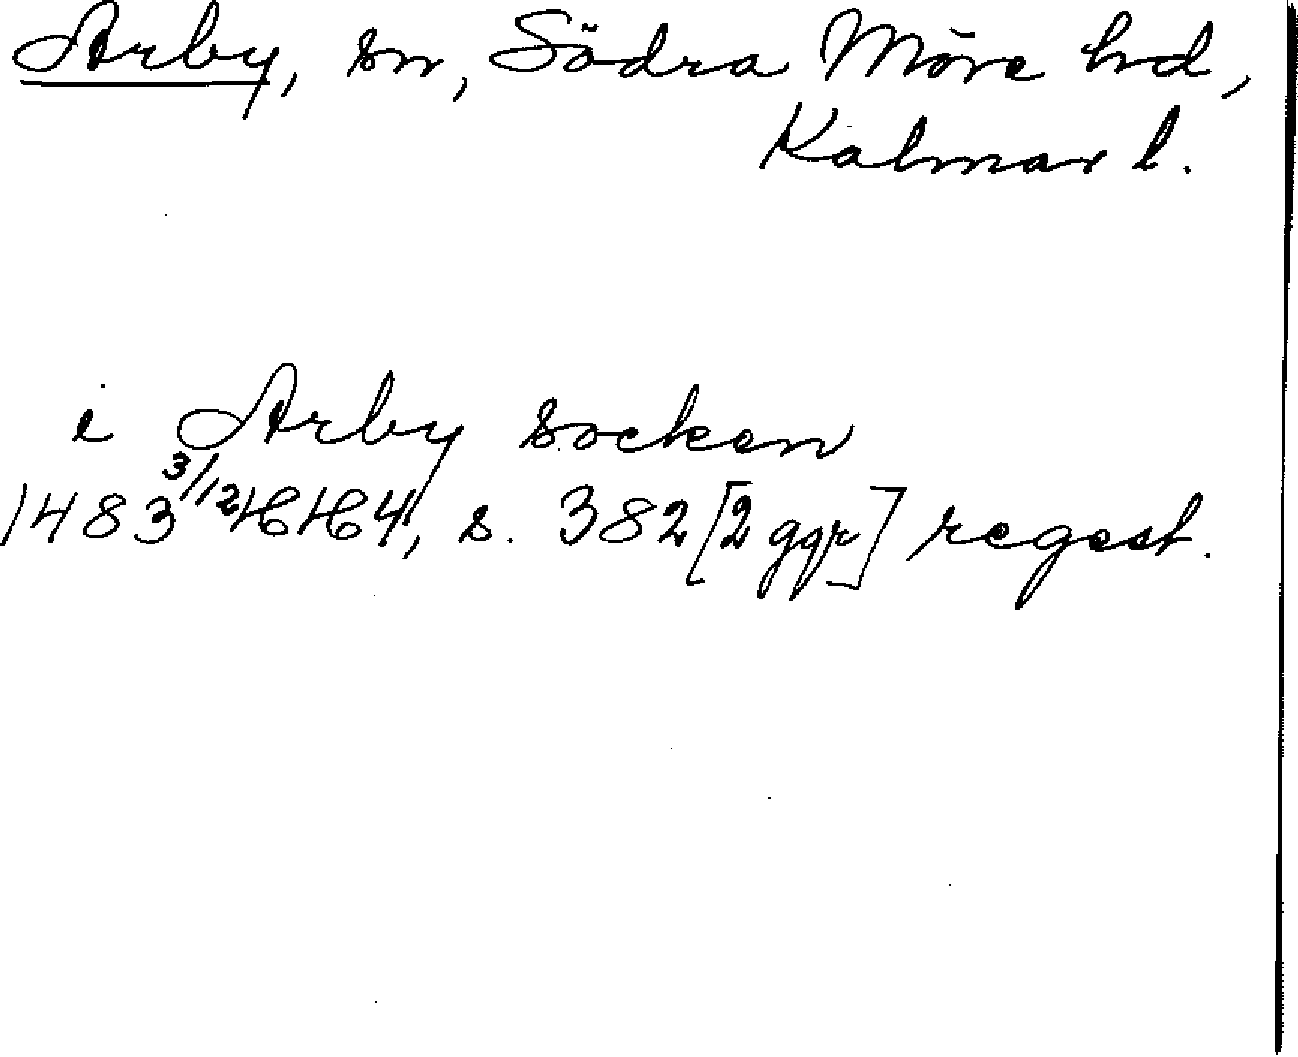 Arby, sn, Södra Möre hd,
Kalmar l.
i Arby socken
1483 3/12 HH4, s. 382 [2 ggr] regest.